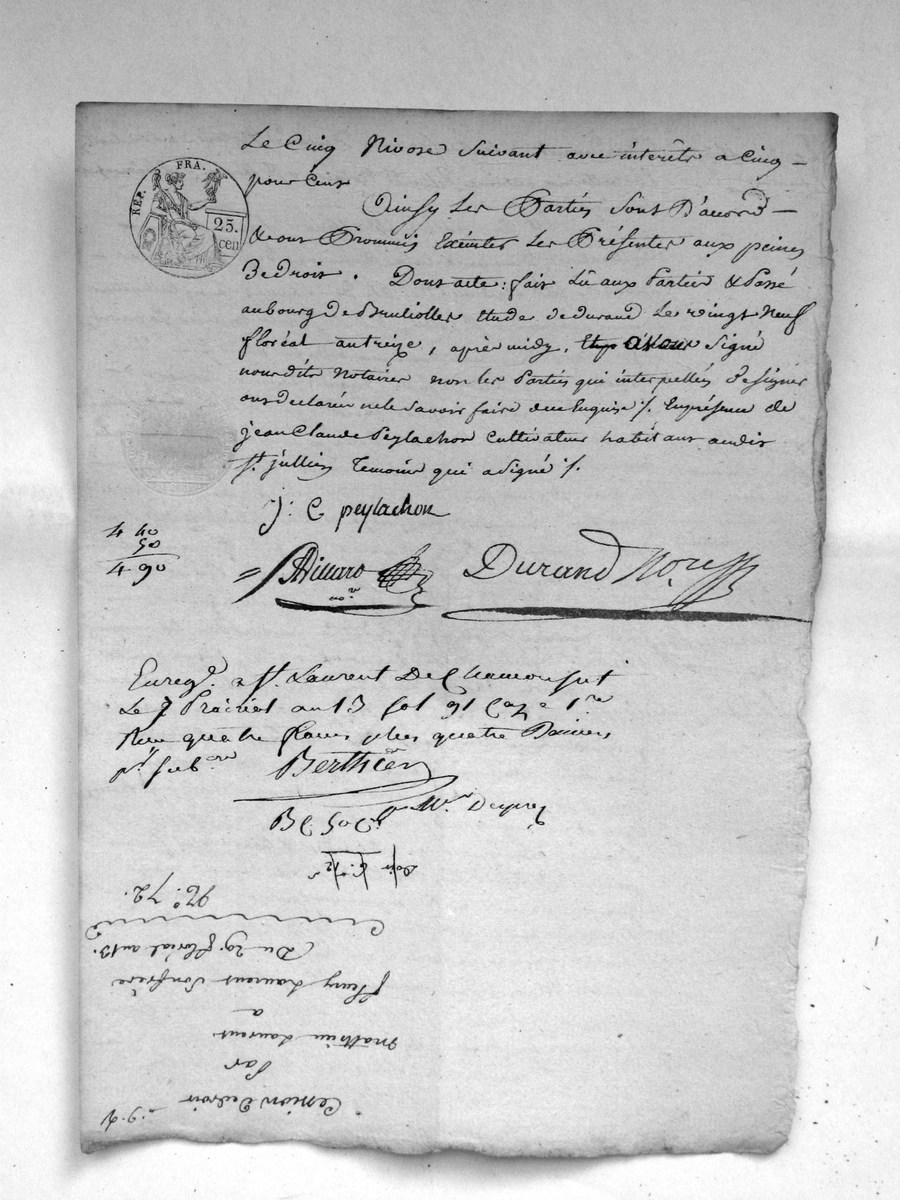 REP. FRA.
25. cen
Le Cinq Nivose suivant avec interêts a Cinq
pour Cent
Ainsy Les Parties sont D'accord
& ont Promis Exécuter Les Présentes aux peines
De droit. Dont acte : fait Lû aux Parties & Passé
au bourg de Brulliolles Etude de durand Le vingt neuf
floréal an treize, après midy, signé
nous dits Notaires non les Parties qui interpellés De signer
ont declarés ne le savoir faire de ce Enquis /. En présence de
jean Claude Peylachon Cultivateur habitant audit
St. jullien temoin qui a signé /.
J: C peylachon
4 40
50
4 90
Durand No.re
Enreg.é a St. Laurent De Chamousset
Le 7 Prairial an 13 fol 91 Case 1re
Reçu quatre francs plus quatre Décimes
pr. sub.on Berthier
No. 72.
Du 29. floréal an 13.
fleury Laurent son frère
a
mathieu Laurent
Par
Cession De droit